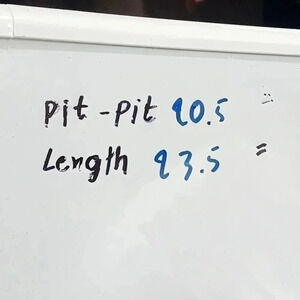 Pit - Pit 20.5
Length 23.5 =